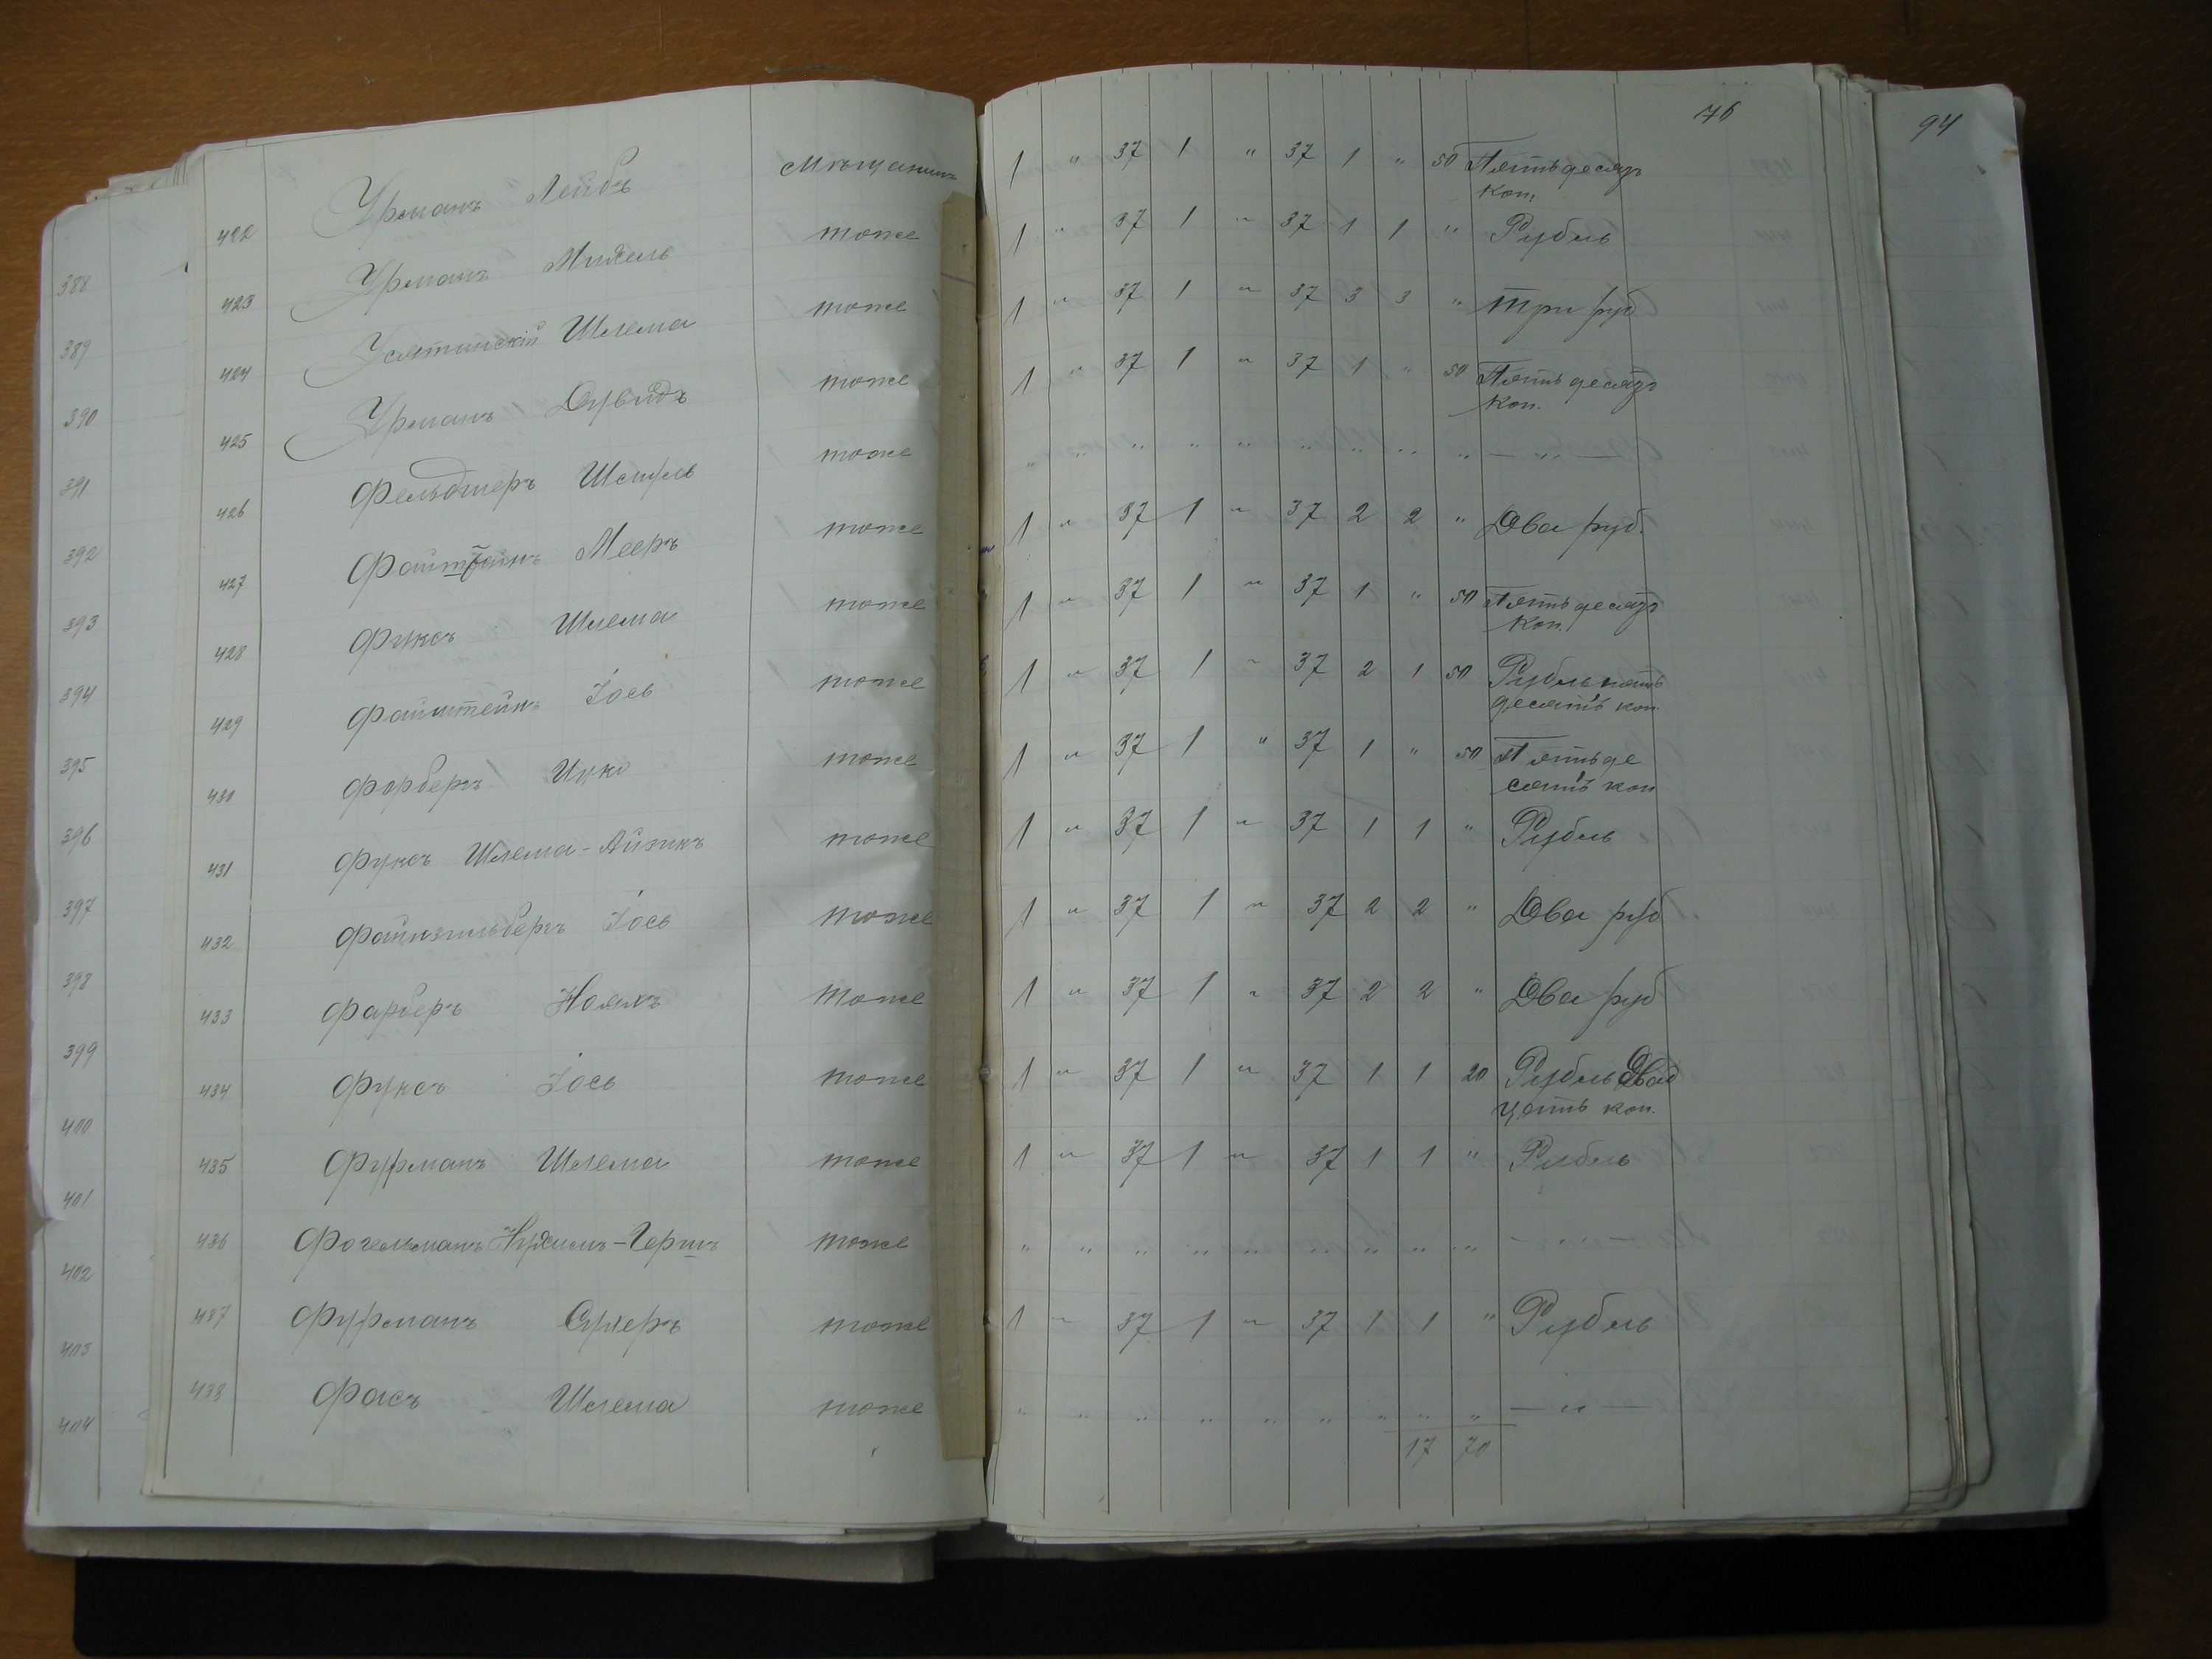 76
94
422 Урманъ Лейбъ Мѣщанинъ 1 " 37 1 " 37 1 " 50 Пятьдесятъ
коп.
388
423 Урманъ Михель тоже 1 " 37 1 " 37 1 1 " Рубль
389
424 Усятинскій Шлема тоже 1 " 37 1 " 37 3 3 " три руб
390
425 Урманъ Дувидъ тоже 1 " 37 1 " 37 1 " 50 Пятьдесятъ
коп.
391
426 Фельдшеръ Шмуль тоже " " " " " " " " " — " —
392
427 Мееръ тоже 1 " 37 1 " 37 2 2 " Два руб.
393
428 Фуксъ Шлема тоже 1 " 37 1 " 37 1 " 50 Пятьдесятъ
коп.
394
429 Файнштейнъ Іось тоже 1 " 37 1 " 37 2 1 50 Рубль пять
десятъ коп.
395
430 Форбергъ Ицко тоже 1 " 37 1 " 37 1 " 50 Пятьде
сятъ коп
396
431 Фуксъ Шлема-Айзикъ тоже 1 " 37 1 " 37 1 1 " Рубль
397
432 Файнзильбергъ Іось тоже 1 " 37 1 " 37 2 2 " Два руб
398
433 Фарберъ тоже 1 " 37 1 " 37 2 2 " Два руб
399
434 Фуксъ Іось тоже 1 " 37 1 " 37 1 1 20 Рубль двад
цать коп.
400
435 Фурманъ Шлема тоже 1 " 37 1 " 37 1 1 " Рубль
401
436 Фогельманъ Нухимъ-Гершъ тоже " " " " " " " " " — " —
402
437 Фурманъ Сухеръ тоже 1 " 37 1 " 37 1 1 " Рубль
403
438 Фасъ Шлема тоже " " " " " " " " " — " —
404
17 70